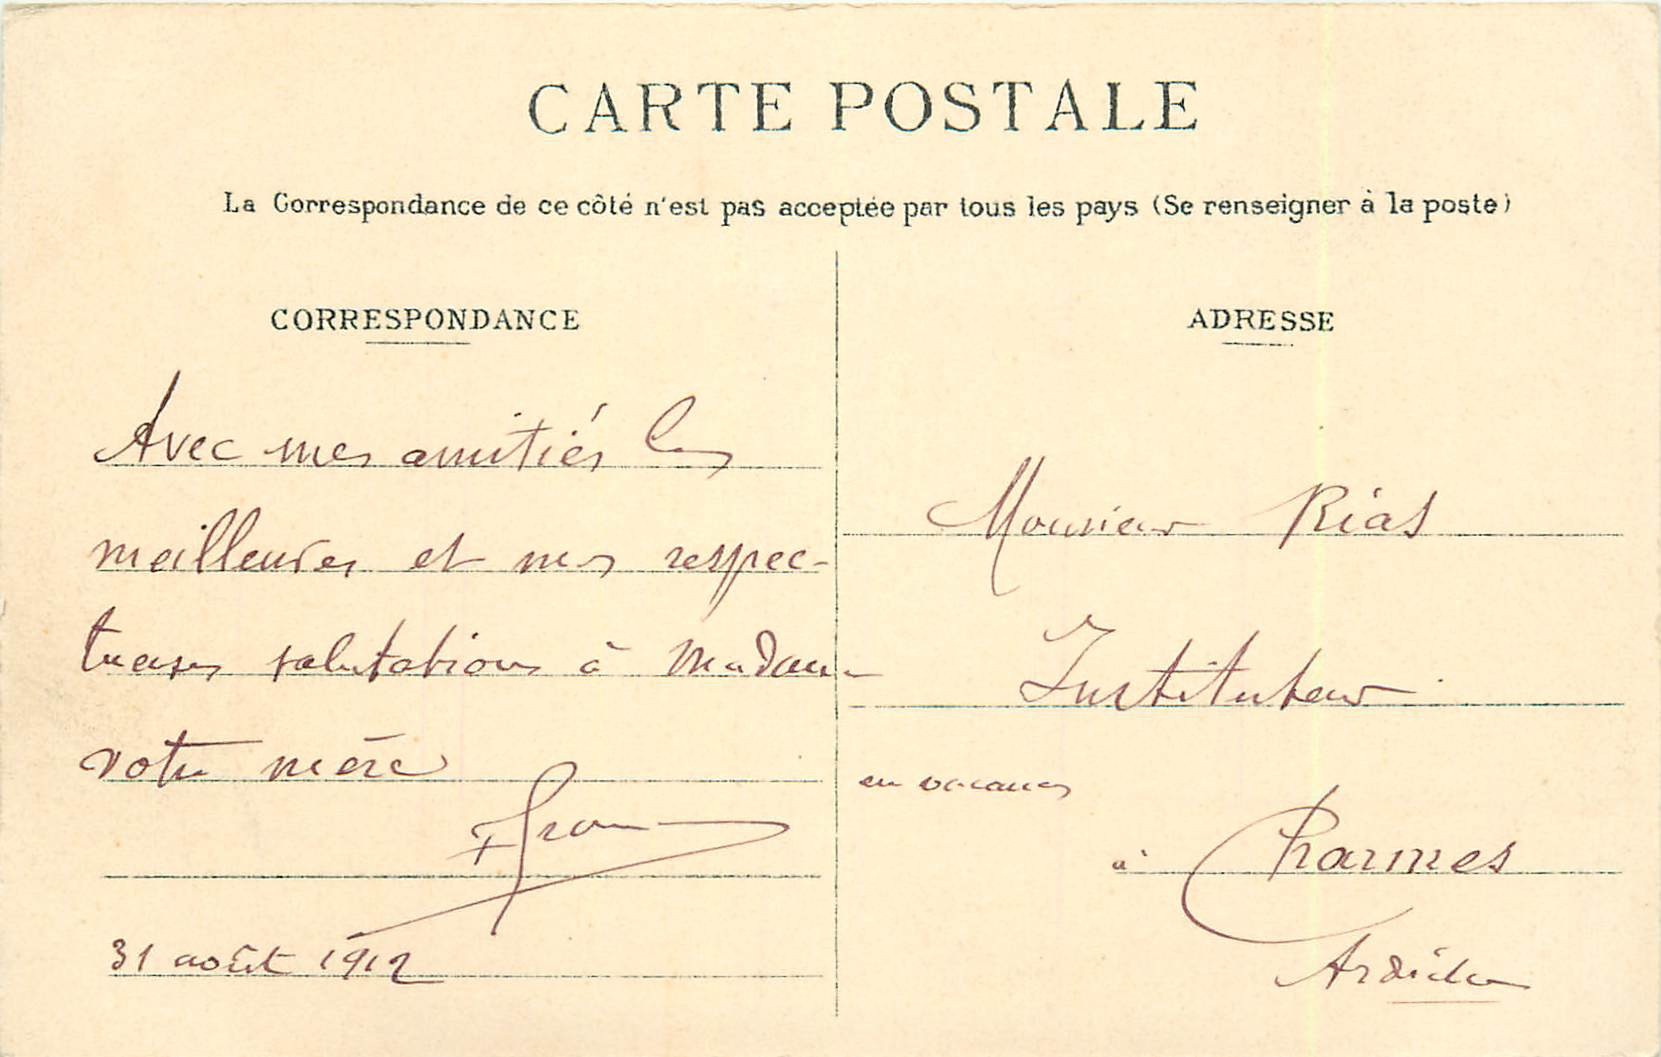 CARTE POSTALE
La Correspondance de ce côté n'est pas acceptée par tous les pays (Se renseigner à la poste)
CORRESPONDANCE
Avec mes amitiés les
meilleures et mes respec-
tueuses salutations à Madame
votre mère
31 août 1912
ADRESSE
Monsieur Rias
Instituteur
en vacances
à Charmes
Ardèche